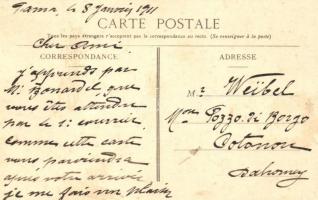 Fama, le 8 Janvier 1911
CARTE POSTALE
Tous les pays étrangers n'acceptent pas la correspondance au recto. (Se renseigner à la poste)
Cher Ami
CORRESPONDANCE
ADRESSE
J'apprends par
M. Bonardel, que
vous êtes attendu
par le 1er courrier.
Comme cette carte
vous parviendra
après votre arrivée
je me fais un plaisir
Mr Weïbel
Mon Pozzo di Borgo
Cotonou
Dahomey